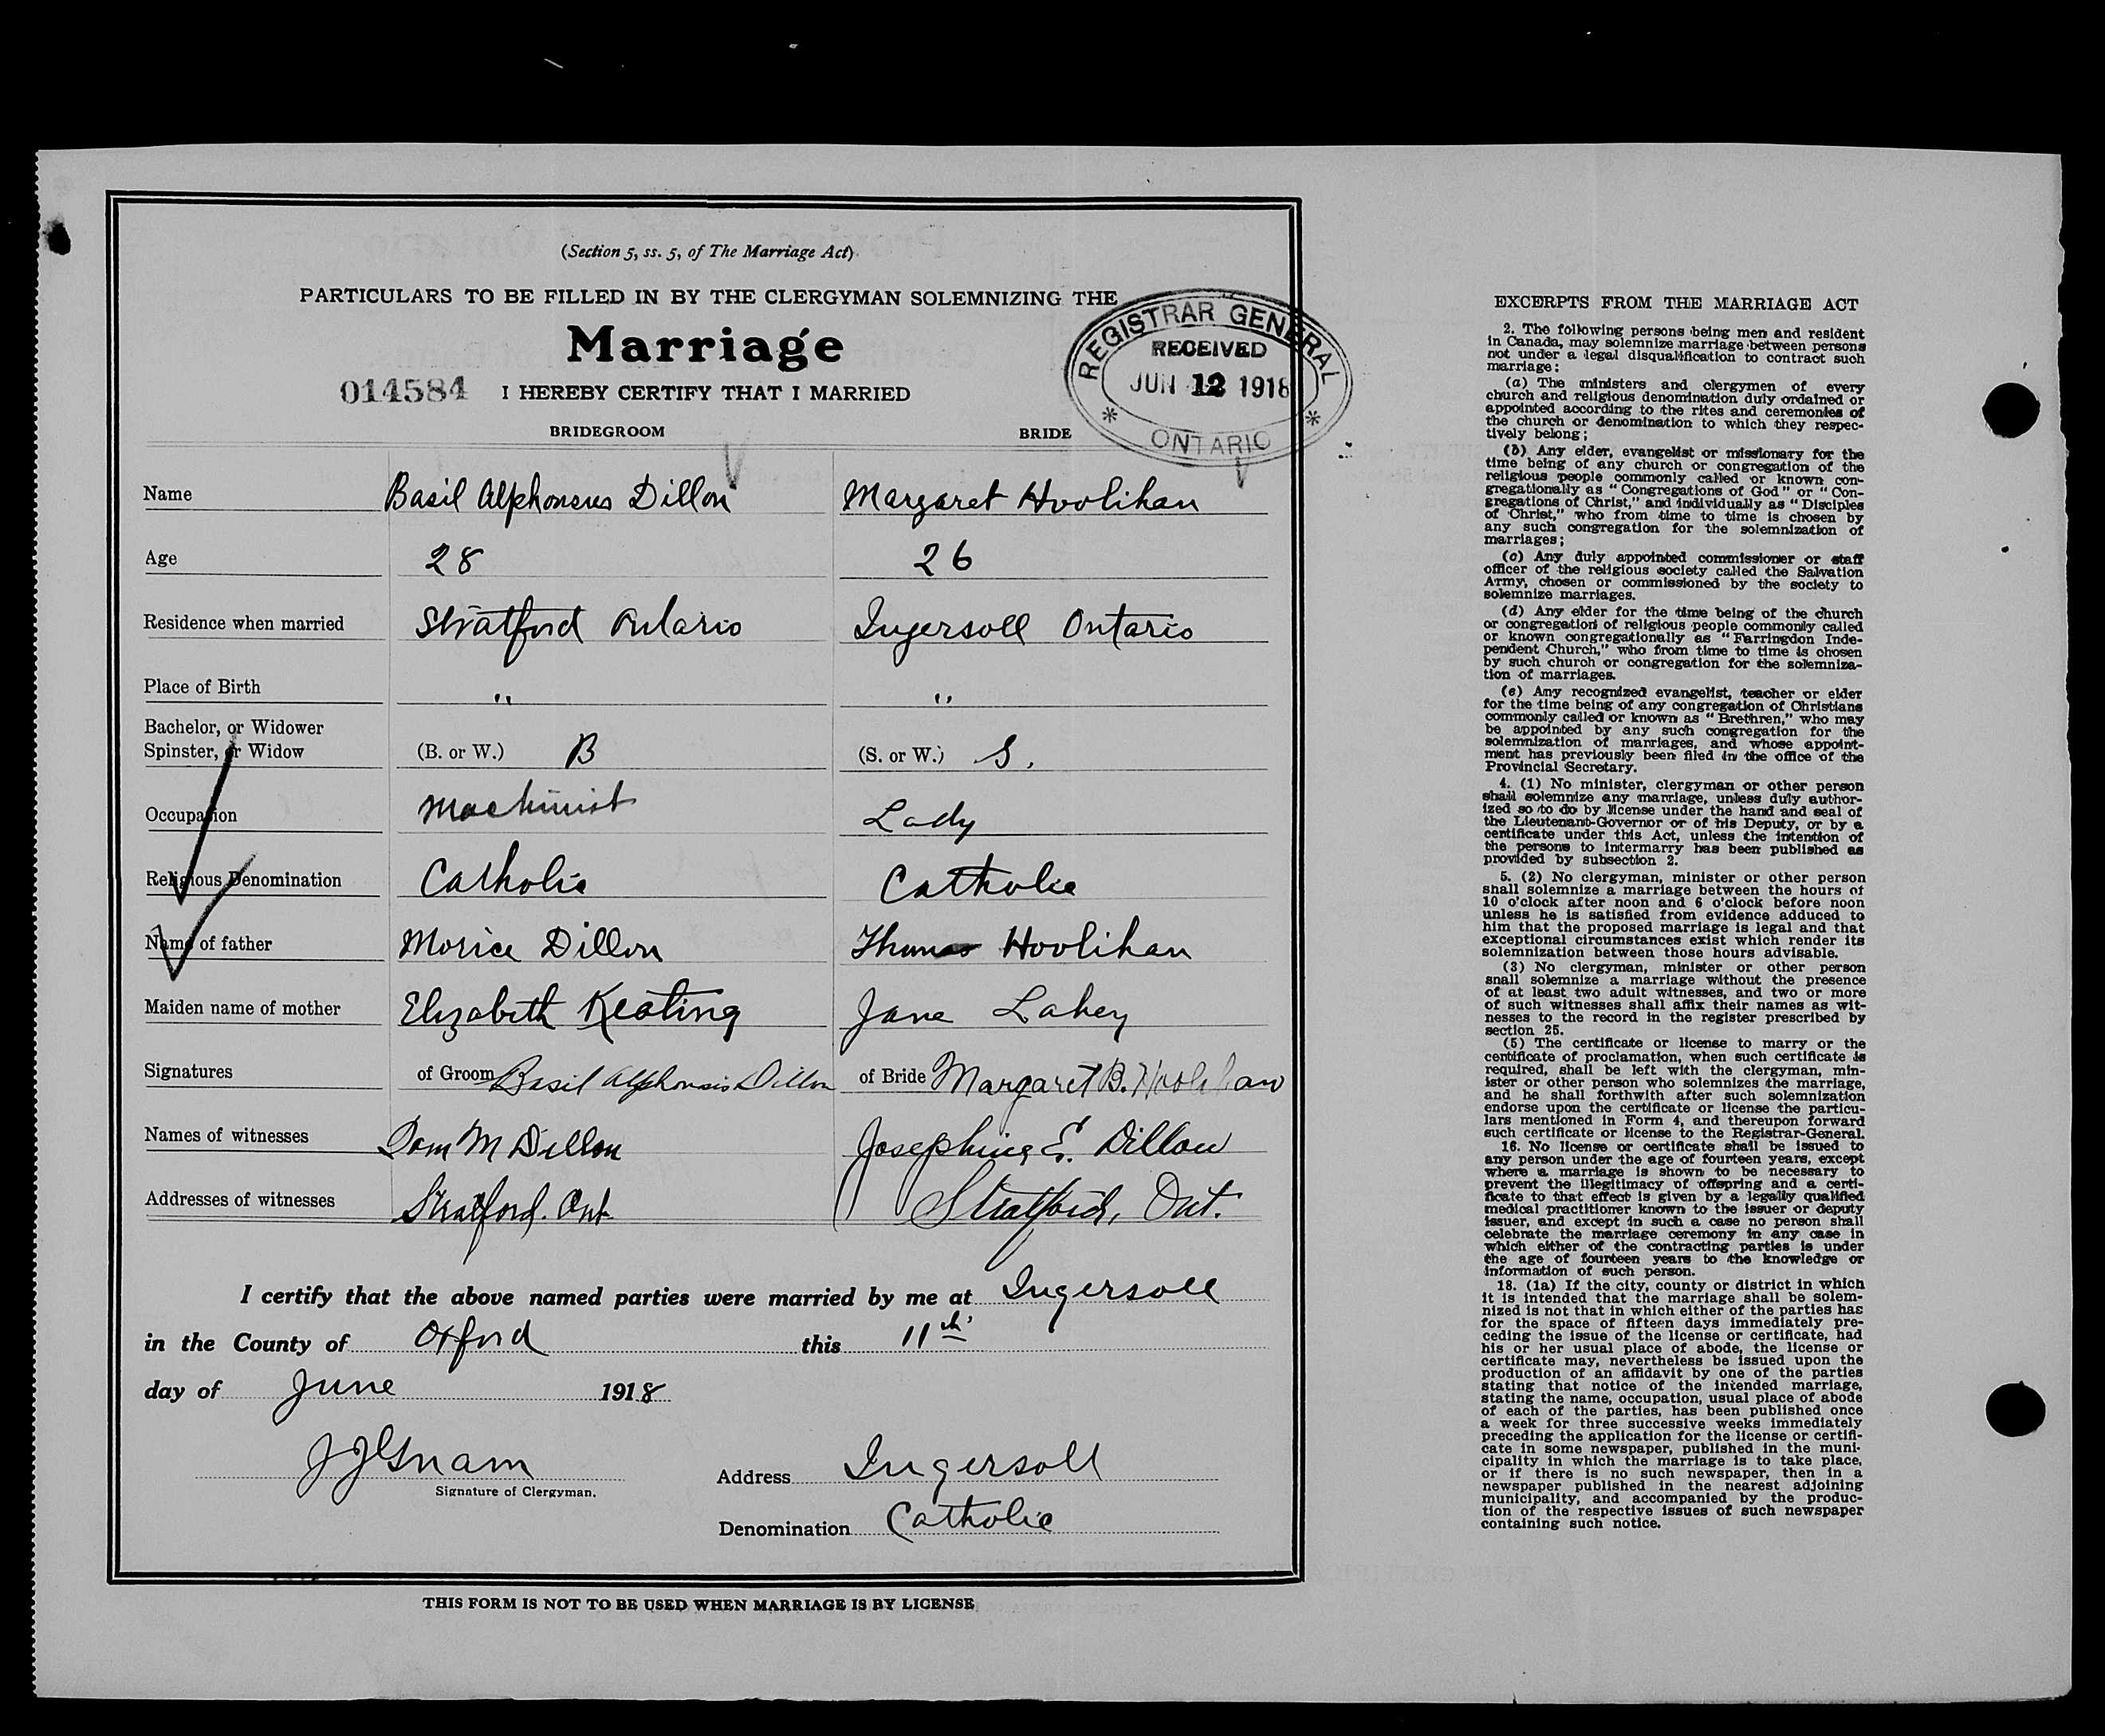 (Section 5, ss. 5, of The Marriage Act)
PARTICULARS TO BE FILLED IN BY THE CLERGYMAN SOLEMNIZING THE
Marriage
014584 I HEREBY CERTIFY THAT I MARRIED
REGISTRAR GENERAL
RECEIVED
JUN 12 1918
ONTARIO
BRIDEGROOM BRIDE
Name Basil Alphonsus Dillon Margaret Hoolihan
Age 28 26
Residence when married Stratford Ontario Ingersoll Ontario
Place of Birth " "
Bachelor, or Widower
Spinster, or Widow (B. or W.) B (S. or W.) S.
Occupation Machinist Lady
Religious Denomination Catholic Catholic
Name of father Morice Dillon Thomas Hoolihan
Maiden name of mother Elizabeth Keating Jane Lahey
Signatures of Groom Basil Alphonsis Dillon of Bride Margaret B. Hoolihan
Names of witnesses Tom M Dillon Josephine E. Dillon
Addresses of witnesses Stratford. Ont. Stratford, Ont.
I certify that the above named parties were married by me at Ingersoll
in the County of Oxford this 11th
day of June 1918
J J Gnam
Signature of Clergyman.
Address Ingersoll
Denomination Catholic
THIS FORM IS NOT TO BE USED WHEN MARRIAGE IS BY LICENSE
EXCERPTS FROM THE MARRIAGE ACT
2. The following persons being men and resident
in Canada, may solemnize marriage between persons
not under a legal disqualification to contract such
marriage:
(a) The ministers and clergymen of every
church and religious denomination duly ordained or
appointed according to the rites and ceremonies of
the church or denomination to which they respec-
tively belong;
(b) Any elder, evangelist or missionary for the
time being of any church or congregation of the
religious people commonly called or known con-
gregationally as "Congregations of God" or "Con-
gregations of Christ," and individually as "Disciples
of Christ," who from time to time is chosen by
any such congregation for the solemnization of
marriages;
(c) Any duly appointed commissioner or staff
officer of the religious society called the Salvation
Army, chosen or commissioned by the society to
solemnize marriages.
(d) Any elder for the time being of the church
or congregation of religious people commonly called
or known congregationally as "Farringdon Inde-
pendent Church," who from time to time is chosen
by such church or congregation for the solemniza-
tion of marriages.
(e) Any recognized evangelist, teacher or elder
for the time being of any congregation of Christians
commonly called or known as "Brethren," who may
be appointed by any such congregation for the
solemnization of marriages, and whose appoint-
ment has previously been filed in the office of the
Provincial Secretary.
4. (1) No minister, clergyman or other person
shall solemnize any marriage, unless duly author-
ized so to do by license under the hand and seal of
the Lieutenant-Governor or of his Deputy, or by a
certificate under this Act, unless the intention of
the persons to intermarry has been published as
provided by subsection 2.
5. (2) No clergyman, minister or other person
shall solemnize a marriage between the hours of
10 o'clock after noon and 6 o'clock before noon
unless he is satisfied from evidence adduced to
him that the proposed marriage is legal and that
exceptional circumstances exist which render its
solemnization between those hours advisable.
(3) No clergyman, minister or other person
shall solemnize a marriage without the presence
of at least two adult witnesses, and two or more
of such witnesses shall affix their names as wit-
nesses to the record in the register prescribed by
section 25.
(5) The certificate or license to marry or the
certificate of proclamation, when such certificate is
required, shall be left with the clergyman, min-
ister or other person who solemnizes the marriage,
and he shall forthwith after such solemnization
endorse upon the certificate or license the particu-
lars mentioned in Form 4, and thereupon forward
such certificate or license to the Registrar-General.
16. No license or certificate shall be issued to
any person under the age of fourteen years, except
where a marriage is shown to be necessary to
prevent the illegitimacy of offspring and a certi-
ficate to that effect is given by a legally qualified
medical practitioner known to the issuer or deputy
issuer, and except in such a case no person shall
celebrate the marriage ceremony in any case in
which either of the contracting parties is under
the age of fourteen years to the knowledge or
information of such person.
18. (1a) If the city, county or district in which
it is intended that the marriage shall be solem-
nized is not that in which either of the parties has
for the space of fifteen days immediately pre-
ceding the issue of the license or certificate, had
his or her usual place of abode, the license or
certificate may, nevertheless be issued upon the
production of an affidavit by one of the parties
stating that notice of the intended marriage,
stating the name, occupation, usual place of abode
of each of the parties, has been published once
a week for three successive weeks immediately
preceding the application for the license or certifi-
cate in some newspaper, published in the muni-
cipality in which the marriage is to take place,
or if there is no such newspaper, then in a
newspaper published in the nearest adjoining
municipality, and accompanied by the produc-
tion of the respective issues of such newspaper
containing such notice.